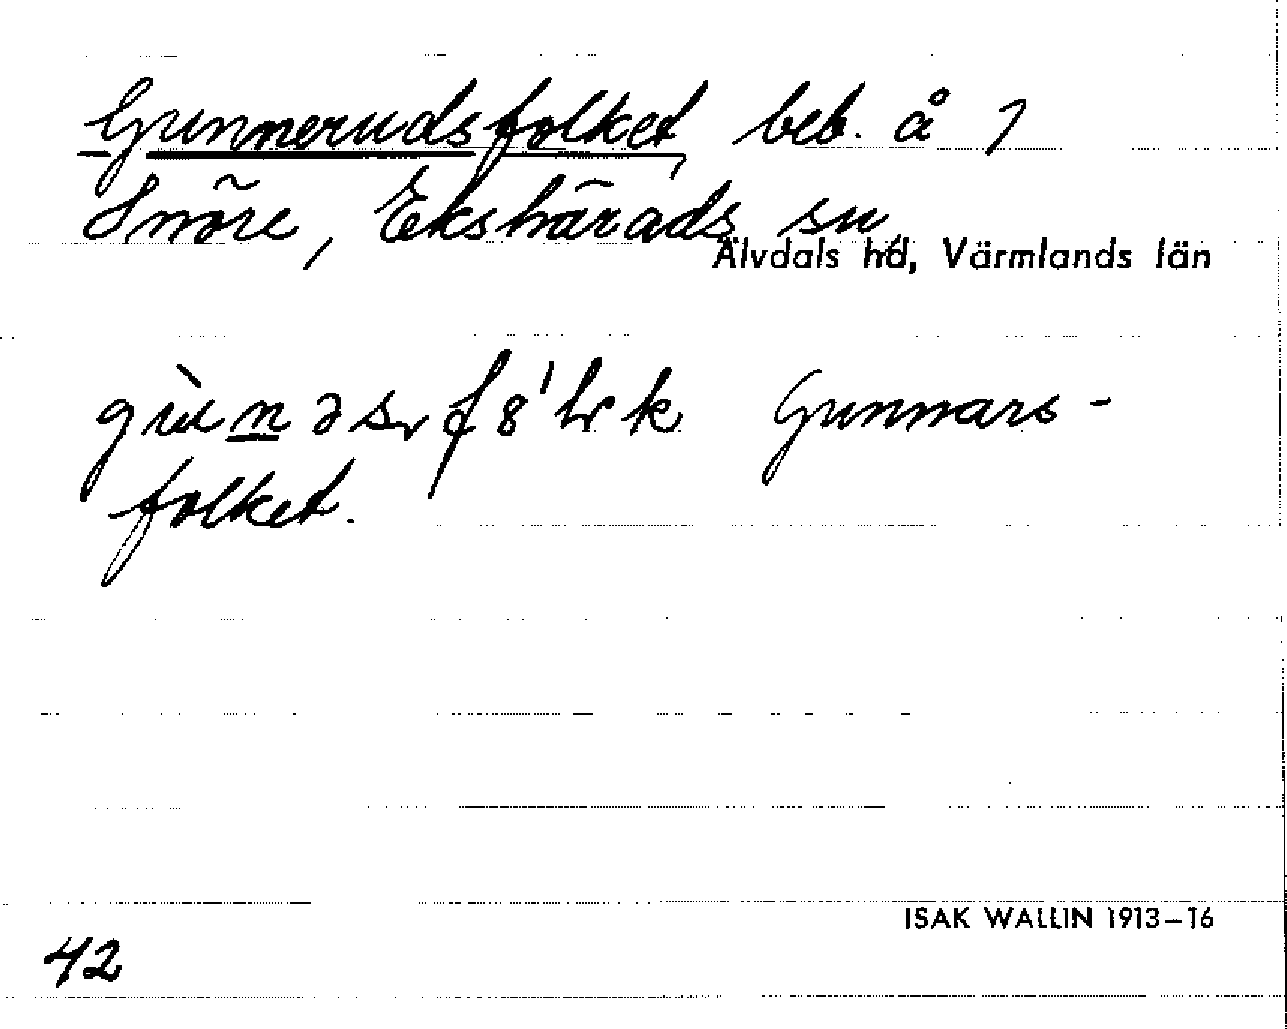 Gunnerudsfolket, beb. å 1
Snöre, Ekshärads sn,
Älvdals hd, Värmlands län
Gunnars-
folket.
ISAK WALLIN 1913–16
42